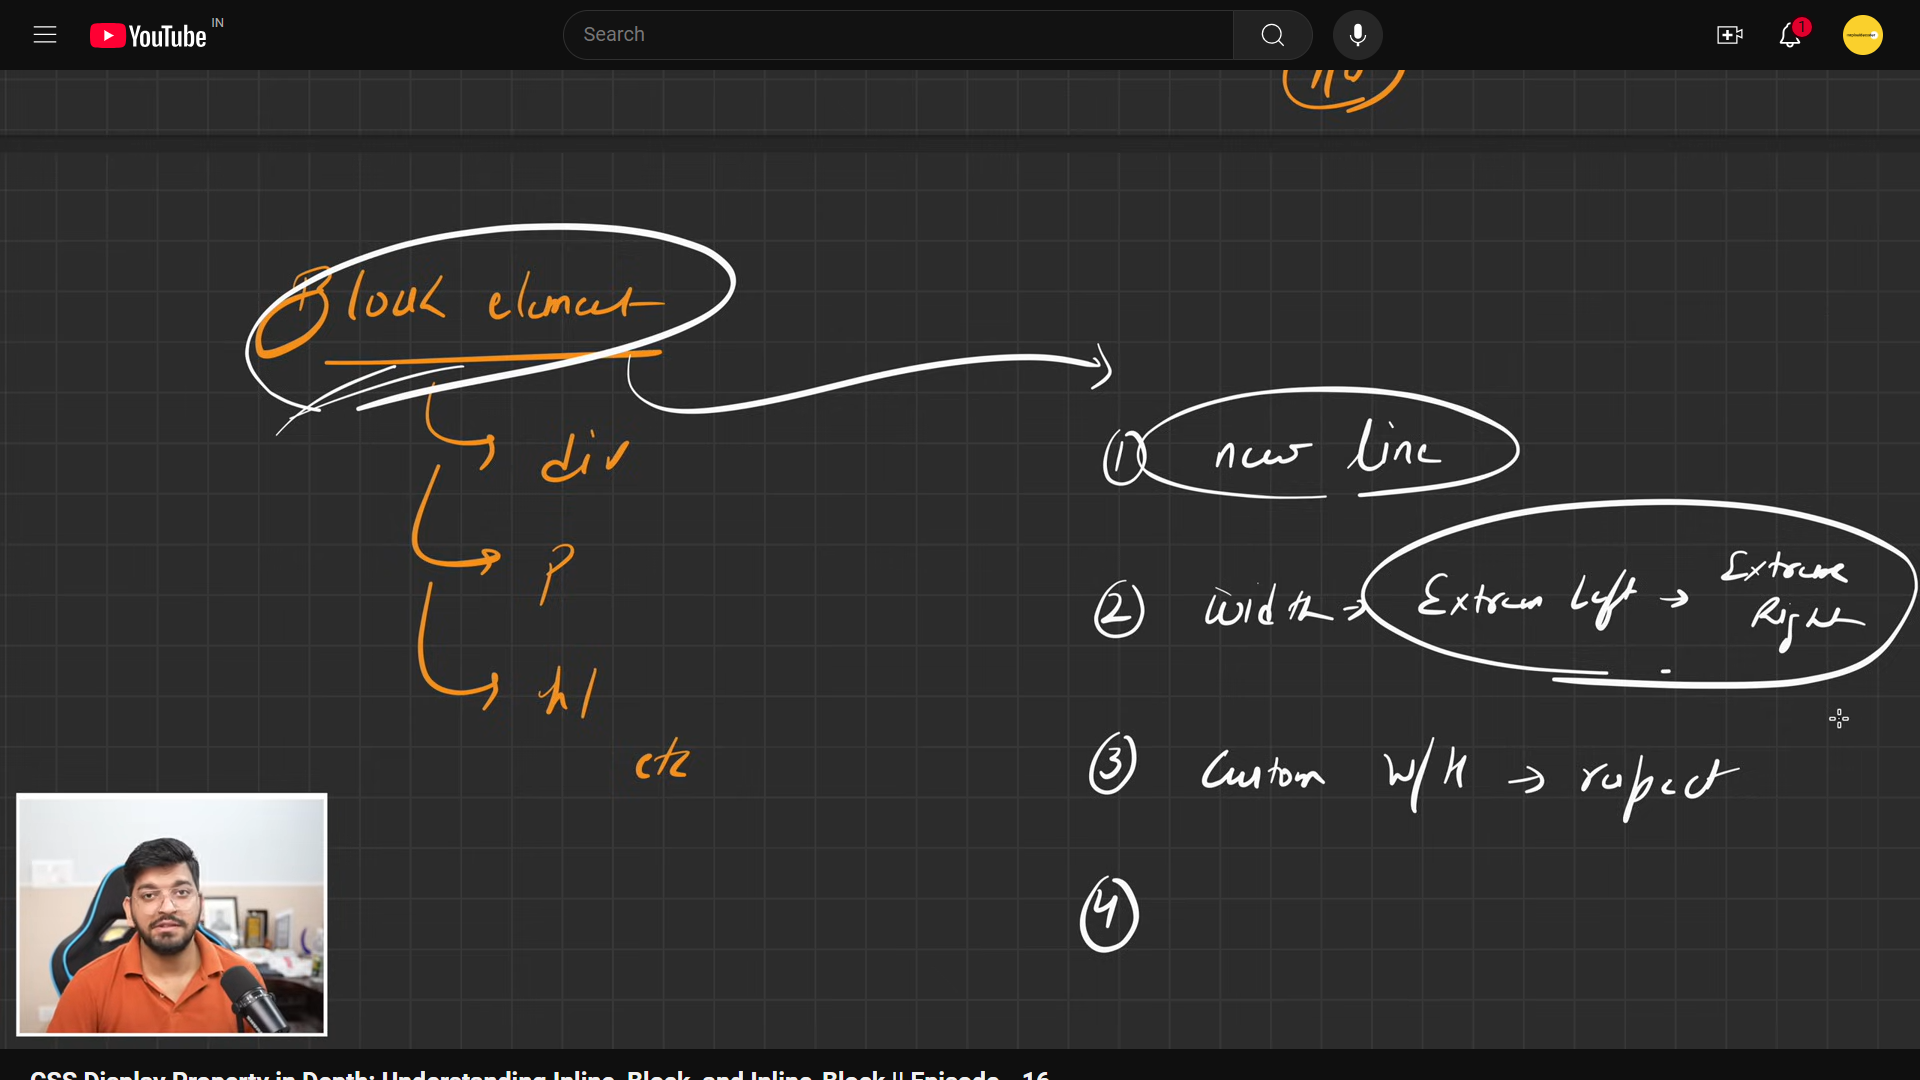 YouTube IN
Search
1
Block element
div
p
h1
etc
① new line
② Width → Extrem Left → Extreme Right
③ Custom W/H → respect
④
CSS Display Property in Depth: Understanding Inline, Block, and Inline-Block || Episode - 16